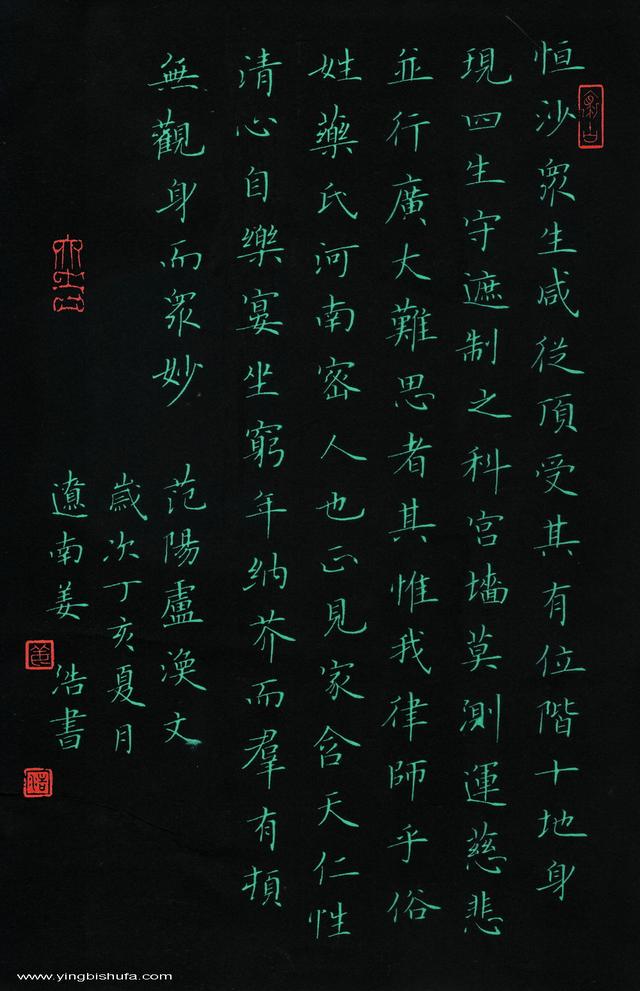 恒沙衆生咸從頂受其有位階十地身
現四生守遮制之科宮墻莫測運慈悲
並行廣大難思者其惟我律師乎俗
姓藥氏河南密人也正見家含天仁性
清心自樂宴坐窮年納芥而羣有頓
無觀身而衆妙
范陽盧渙文
歲次丁亥夏月
遼南姜浩書
www.yingbishufa.com